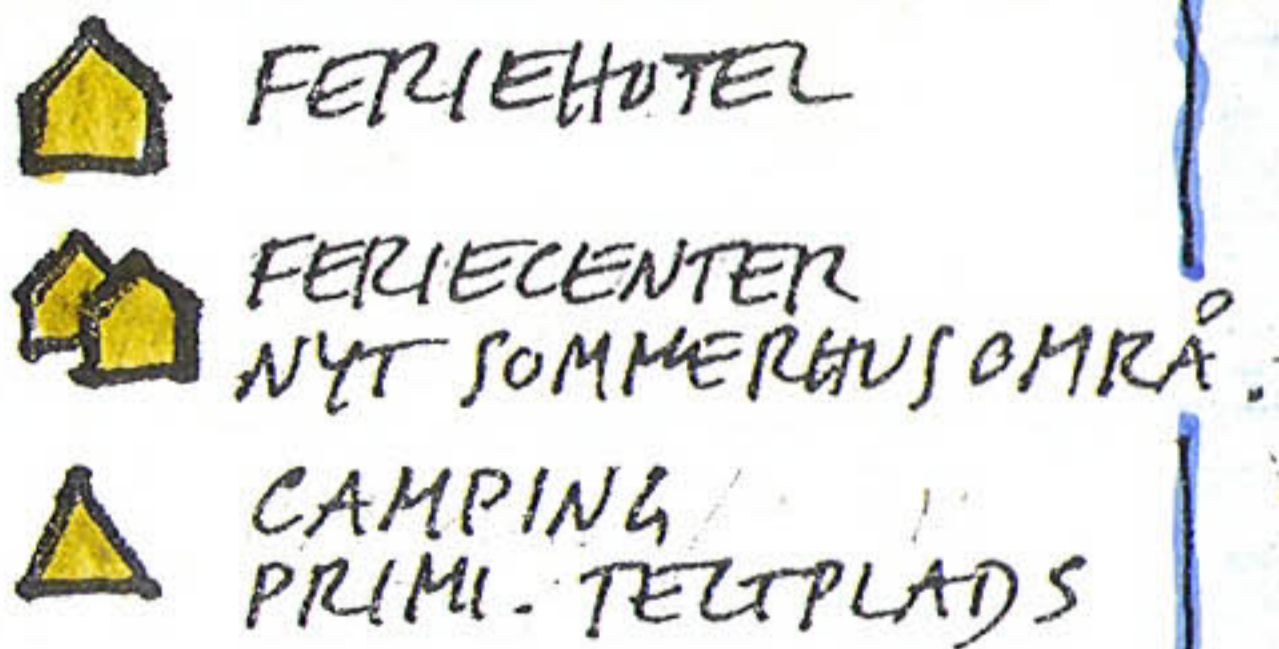 FERIEHOTEL
FERIECENTER
NYT SOMMERHUSOMRÅ.
CAMPING
PRIMI. TELTPLADS